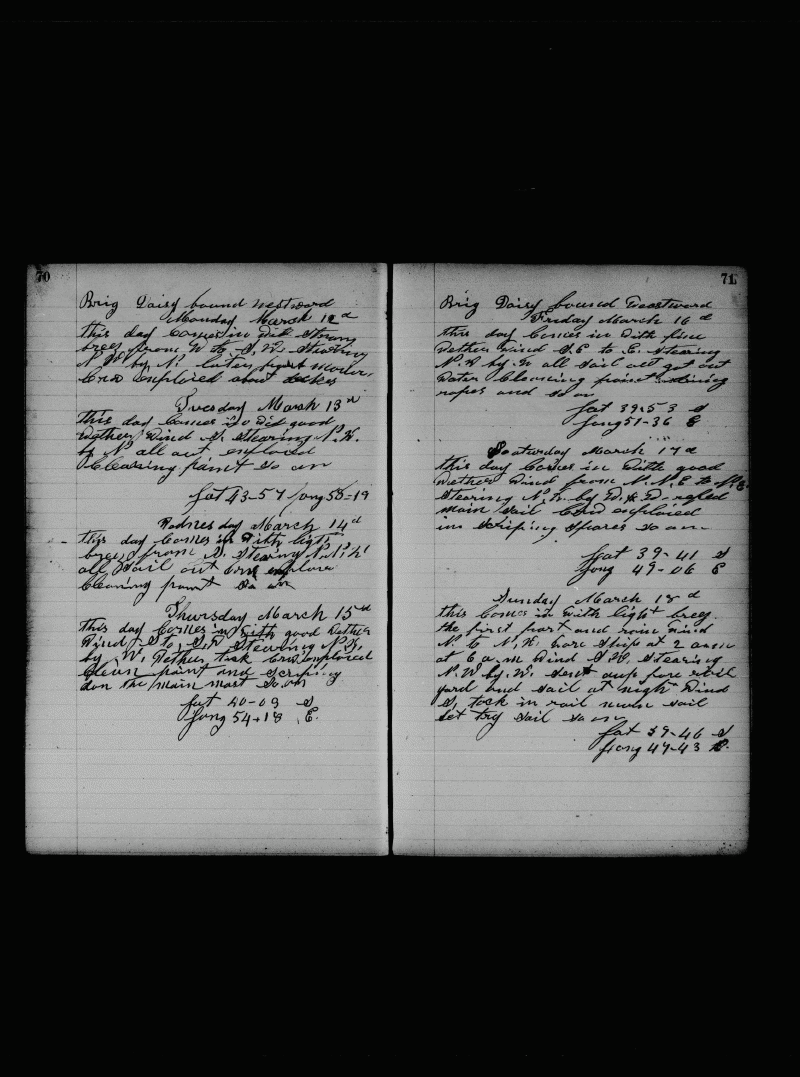 70
Brig Daisy bound westward
Monday March 12 d
this day Comes in Wit Strong
brees from W to S. W. Stearing
N. W by N. later part moder.
Crew employed about
Tuesday March 13 d
this day Comes in Wit good
Wether Wind S. Stearing N. W.
by N all out employed
Clearing paint So on
Lat 43-57 Long 58-19
Wadnesday March 14 d
this day Comes in With light
breez from S. Stearing N. N. W
all Sail out Crew
Cleaning paint So on
Thursday March 15 d
this day Comes in With good Wether
Wind S to S. W Stearing N. W.
by W. Wether tack Crew employed
Clean paint and Scriping
don the main mast So on
Lat 40-03 S
Long 54-18 E.
71
Brig Daisy bound Weastward
Friday March 16 d
this day Comes in With fine
Wether Wind S. E to E. Stearing
N. W by N all Sail out got out
Water Cleaning paint
ropes and So on
Lat 39-53 S
Long 51-36 E
Saaturday March 17 d
this day Comes in With good
Wether Wind from N. N. E to N. E.
Stearing N. W. by W. & W.
main Sail Crew employed
in Scriping Spares So on
Lat 39-41 S
Long 49-06 E
Sunday March 18 d
this Comes in With light breez
the first part and
N. E N. W. Ware Ship at 2 a.m
at 6 a.m Wind S. W. Stearing
N. W by. W. Sent up fore
yard and Sail at night Wind
S, tock in Sail
Set try Sail So on
Lat 39-46 S
Long 47-43 E.